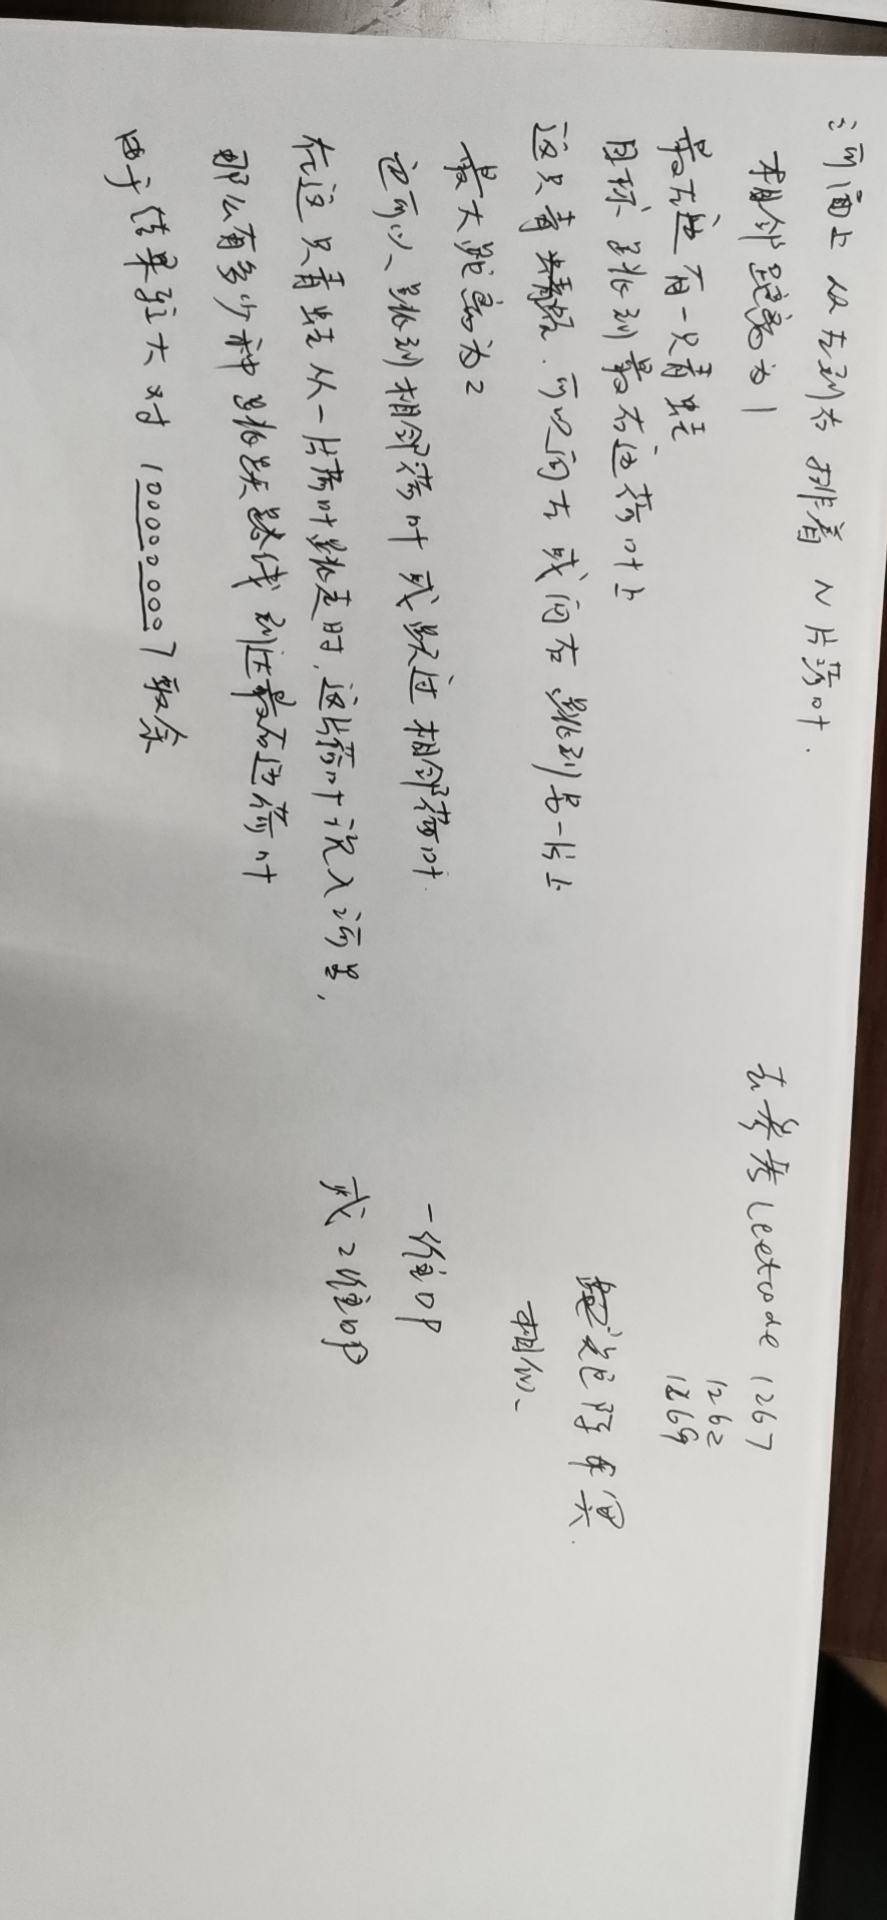 河面上 从左到右 排着 N 片荷叶.
相邻距离为1
最左边有一只青蛙
目标 跳到最右边荷叶上
这只青蛙. 可以向左 或 向右 跳到另一片上
最大距离为2
也可以、跳到相邻荷叶 或跃过 相邻荷叶.
在这只青蛙从一片荷叶跳走时, 这片荷叶沉入河里,
那么有多少种 跳跃路线 到达最右边荷叶
由于结果较大 对 1000000007 取余
去参考 Leetcode 1267
1262
1269
跟矩阵乘幂.
相似、
一维DP
或2维DP